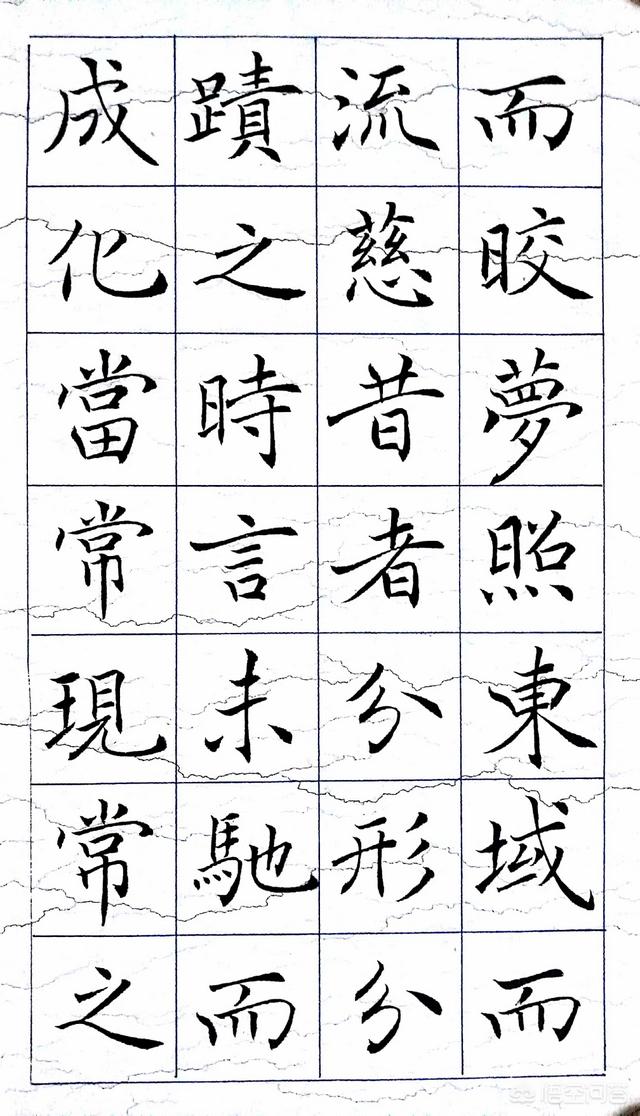 而皎夢照東域而
流慈昔者分形分
蹟之時言未馳而
成化當常現常之
悟空问答